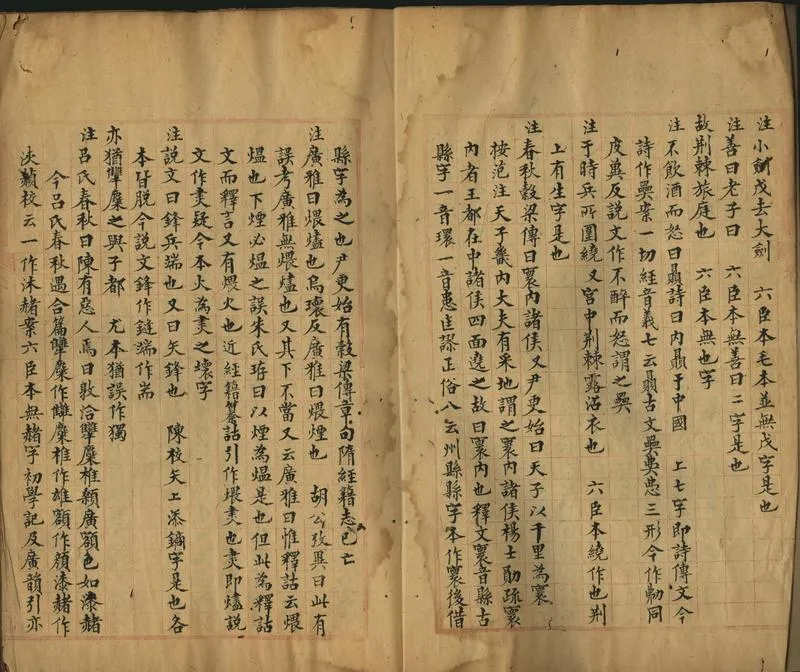 注小劍戊去大劍　六臣本毛本並無戊字是也
注善曰老子曰　六臣本無善曰二字是也
故荆棘旅庭也　六臣本無也字
注不飲酒而怒曰奰詩曰内奰于中國　上七字即詩傳文今
詩作奰案一切經音義七云奰古文奰㚅三形今作勫同
皮兾反説文作不醉而怒謂之奰
注于時兵所圍繞又宫中荆棘露沾衣也　六臣本繞作也荆
上有生字是也
注春秋穀梁傳曰寰内諸侯又尹更始曰天子以千里為寰
桉范注天子畿内大夫有采地謂之寰内諸侯楊士勛疏寰
内者王都在中諸侯四面遶之故曰寰内也釋文寰音縣古
縣字一音環一音患匡謬正俗八云州縣縣字本作寰後借
縣字為之也尹更始有穀梁傳章句隋經籍志已亡
注廣雅曰煨燼也烏瓌反廣雅曰煨煙也　胡公攷異曰此有
誤考廣雅無煨燼也又其下不當又云廣雅曰惟釋詁云煨
熅也下煙必熅之誤朱氏珔曰以煙為熅是也但此為釋詁
文而釋言又有煨火也近經籍籑詁引作煨㶳也㶳即燼説
文作㶳疑今本火為㶳之壞字
注説文曰鋒兵端也又曰矢鋒也　陳校矢上添鏑字是也各
本皆脱今説文鋒作鏠端作耑
亦猶犫麋之與子都　尤本猶誤作獨
注吕氏春秋曰陳有惡人焉曰敦洽犫麋椎顙廣額色如漆赭
今吕氏春秋遇合篇犫麋作讎麋椎作雄額作顔漆赭作
浹赬校云一作沐赭案六臣本無赭字初學記及廣韻引亦